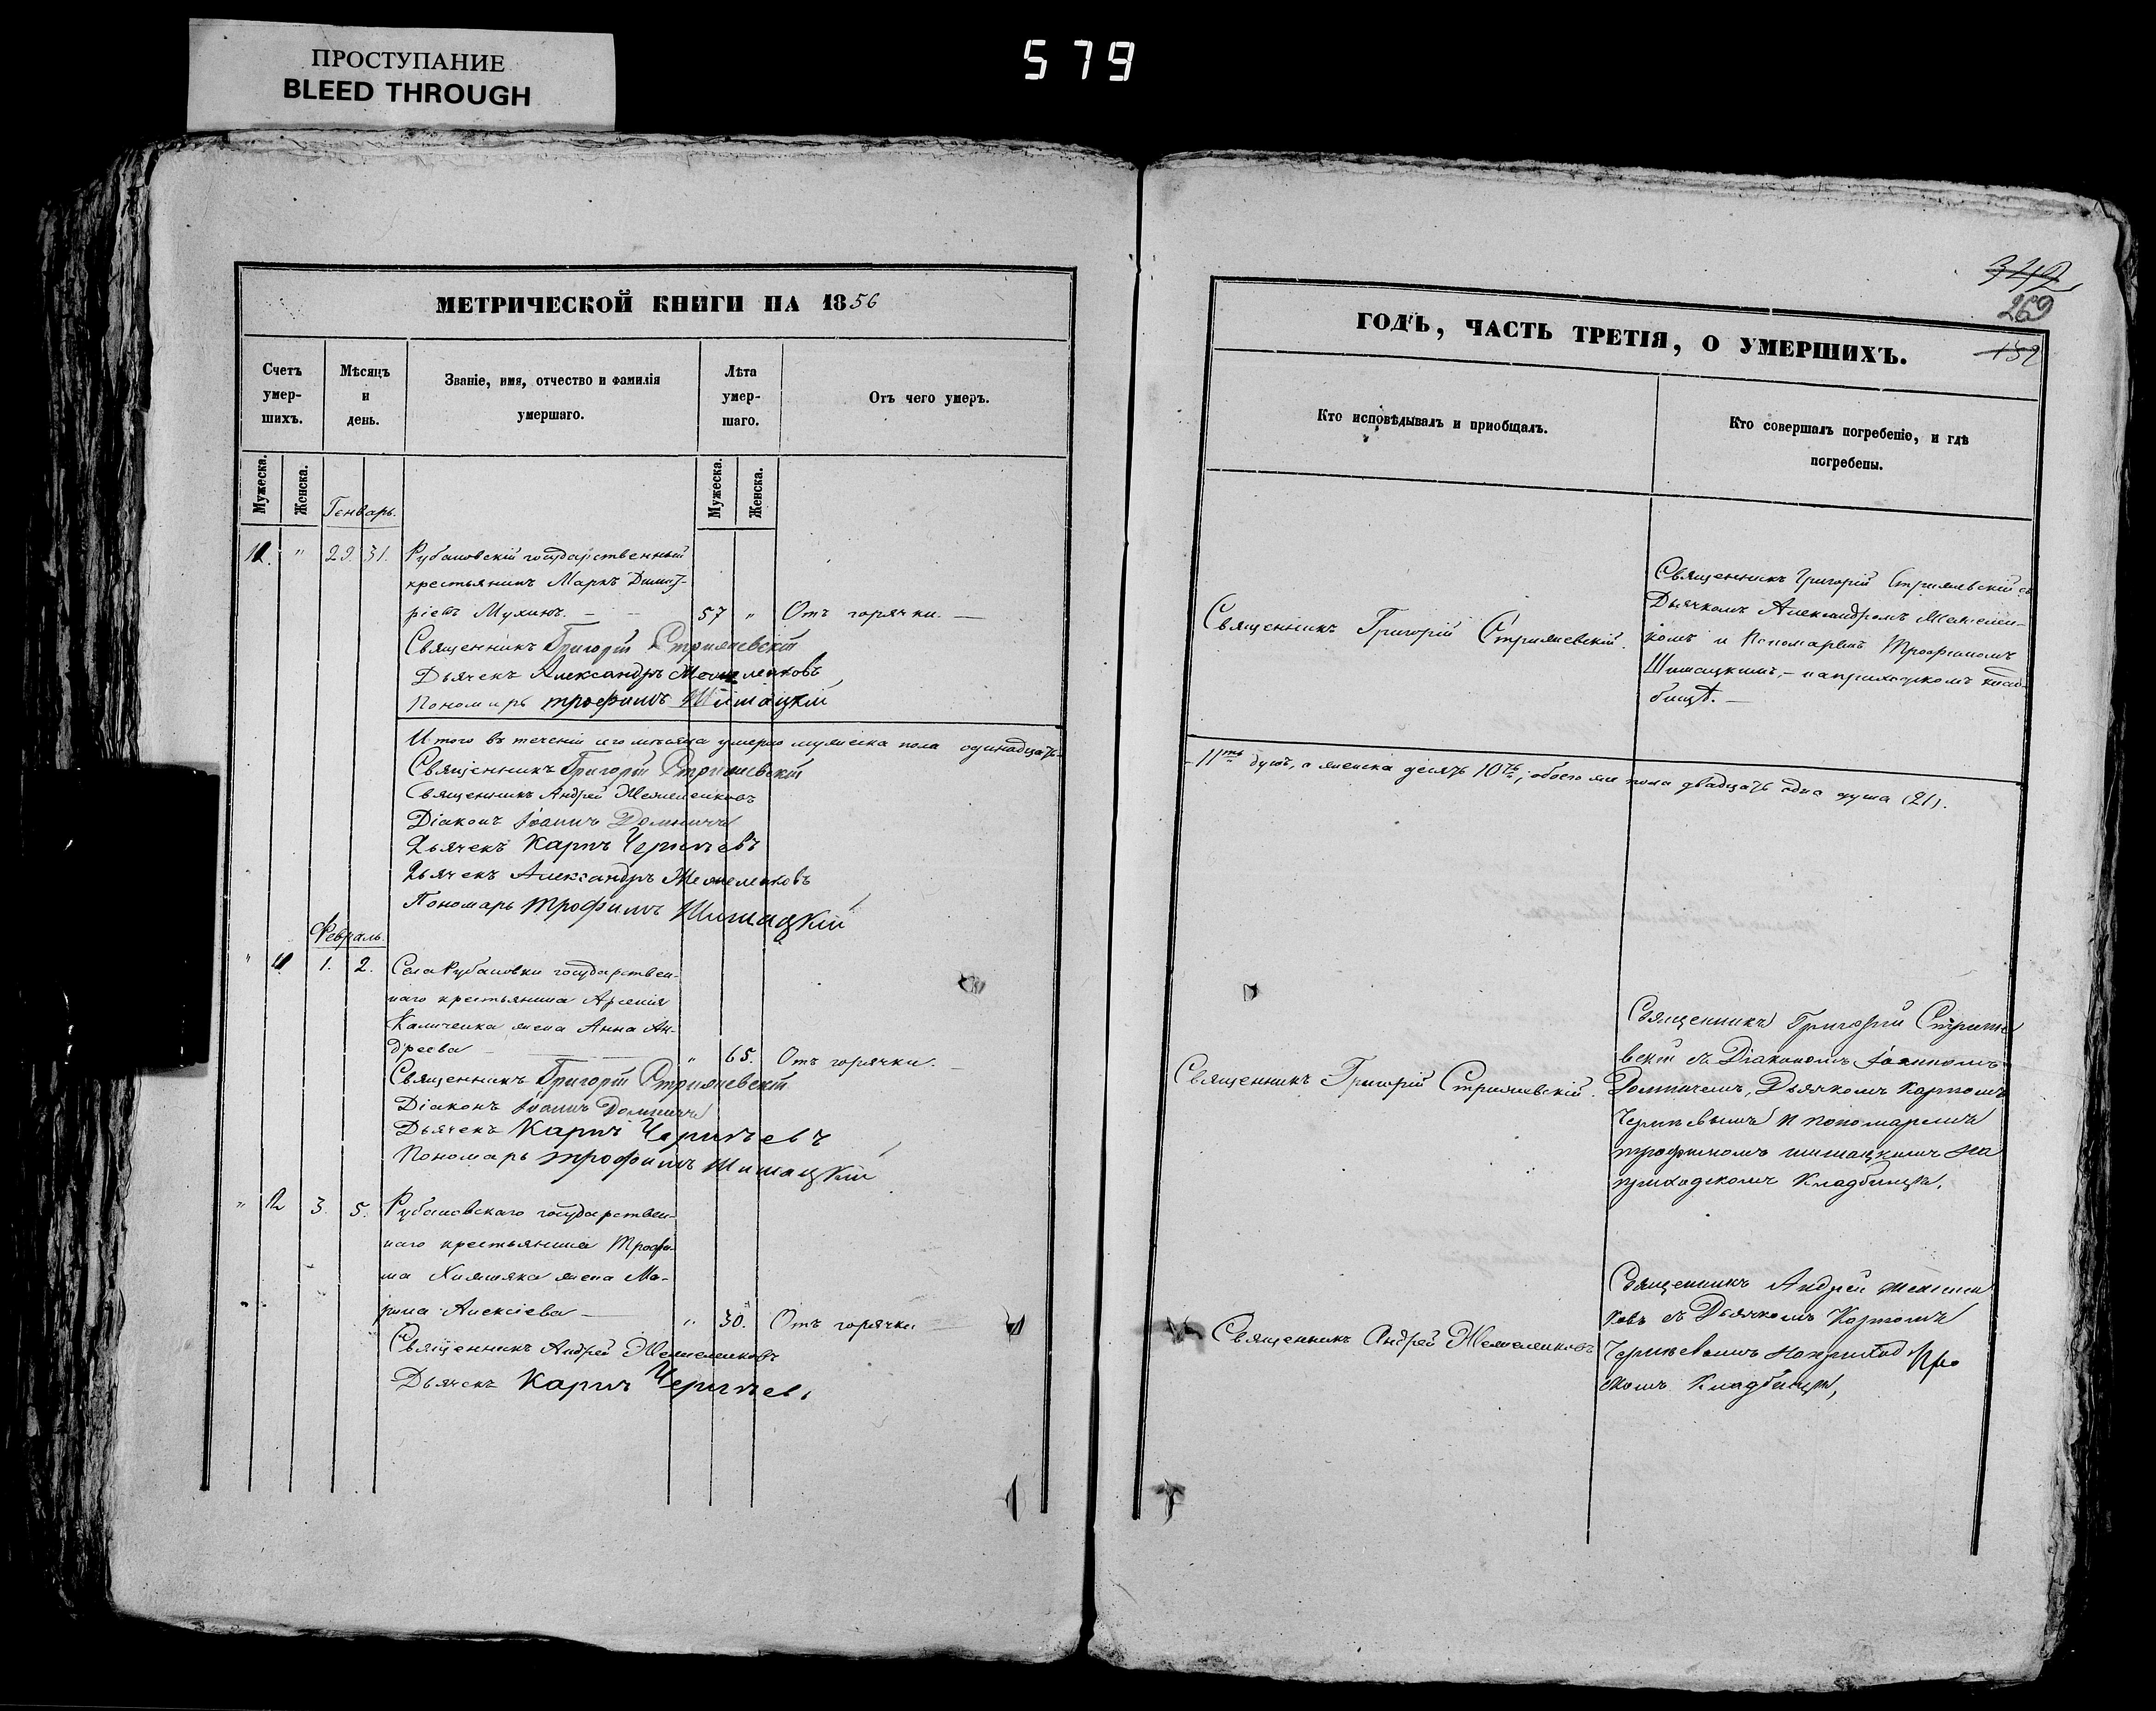 ПРОСТУПАНИЕ
BLEED THROUGH
579
МЕТРИЧЕСКОЙ КНИГИ НА 1856
Счетъ умер-шихъ.
Мѣсяцъ и день.
Званіе, имя, отчество и фамилія умершаго.
Лѣта умер-шаго.
Отъ чего умеръ.
Мужеска.
Женска.
Мужеска.
Женска.
Генварь.
11. " 29. 31. Рубановскій государственный
крестьянинъ Маркъ Димит-
ріевъ Мухинъ. — 57 " Отъ горячки. —
Священникъ Григорій Стрижевскій
Дьячекъ Александръ Межеленковъ
Пономарь Трофимъ Шишацкій
Итого въ теченіи сего мѣсяца умерло мужеска пола одинадцать
Священникъ Григорій Стрижевскій
Священникъ Андрей Межеленковъ
Діаконъ Іоаннъ
Дьячекъ Карпъ
Дьячекъ Александръ Межеленковъ
Пономарь Трофимъ Шишацкій
Февраль.
" 11 1. 2. Села Рубановки государствен-
наго крестьянина Арсенія
Каличенка жена Анна Ан-
дреева — " 65. Отъ горячки. —
Священникъ Григорій Стрижевскій
Діаконъ Іоаннъ
Дьячекъ Карпъ
Пономарь Трофимъ Шишацкій
" 12 3. 5. Рубановскаго государствен-
наго крестьянина Трофи-
ма жена Ма-
рина Алексіева — " 30. Отъ горячки
Священникъ Андрей Межеленковъ
Дьячекъ Карпъ
342
269
152
ГОДЪ, ЧАСТЬ ТРЕТІЯ, О УМЕРШИХЪ.
Кто исповѣдывалъ и пріобщалъ.
Кто совершалъ погребеніе, и гдѣ погребены.
Священникъ Григорій Стрижевскій.
Священникъ Григорій Стрижевскій съ
Дьячкомъ Александромъ Межелен-
комъ и Пономаремъ Трофимомъ
Шишацкимъ, — на приходскомъ клад-
бищѣ. —
11ть душъ, а женска десять 10ть; обоего же пола двадцать одна душа (21).
Священникъ Григорій Стрижевскій.
Священникъ Григорій Стриже
вскій съ Діакономъ Іоанномъ
Дьячкомъ Карпомъ
и пономаремъ
Трофимомъ Шишацкимъ на
приходскомъ кладбищѣ.
Священникъ Андрей Межеленковъ
Священникъ Андрей Межелен
ковъ съ Дьячкомъ Карпомъ
на приход
скомъ кладбищѣ,